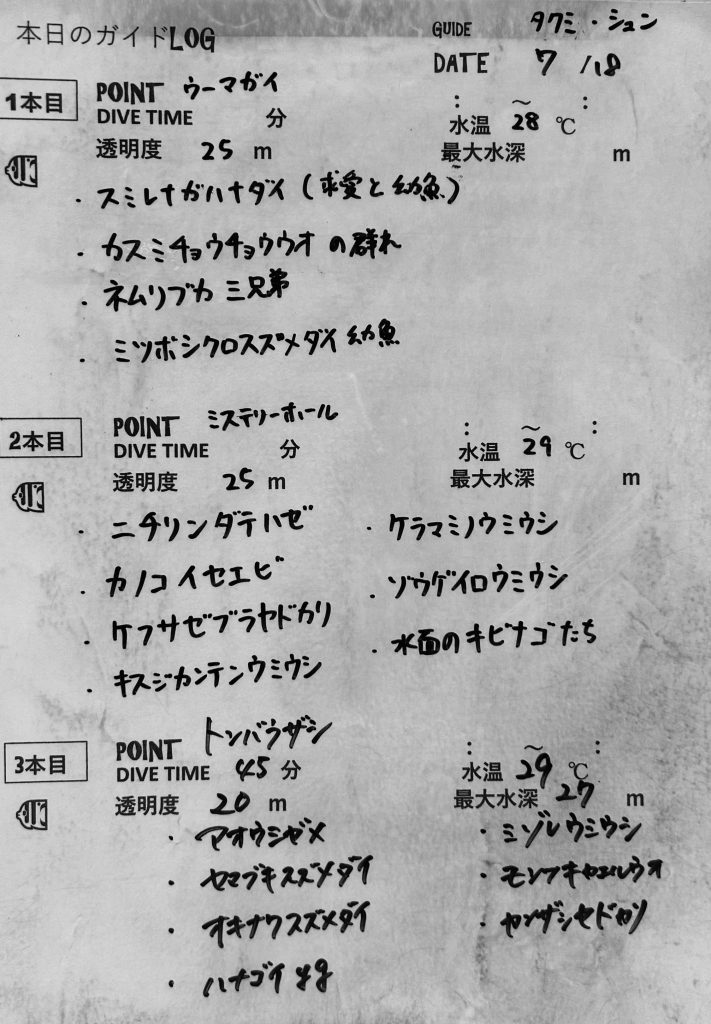 本日のガイドLOG
GUIDE タクミ・シュン
DATE 7/18
1本目
POINT ウーマガイ
DIVE TIME 分 : ～ :
水温 28 ℃
透明度 25 m 最大水深 m
・スミレナガハナダイ (求愛と幼魚)
・カスミチョウチョウウオの群れ
・ネムリブカ 三兄弟
・ミツボシクロスズメダイ 幼魚
2本目
POINT ミステリーホール
DIVE TIME 分 : ～ :
水温 29 ℃
透明度 25 m 最大水深 m
・ニチリンダテハゼ ・ケラマミノウミウシ
・カノコイセエビ ・ゾウゲイロウミウシ
・ケフサゼブラヤドカリ ・水面のキビナゴたち
・キスジカンテンウミウシ
3本目
POINT トンバウザシ
DIVE TIME 45 分 : ～ :
水温 29 ℃
透明度 20 m 最大水深 27 m
・アオウミガメ ・ミゾレウミウシ
・ヤマブキスズメダイ ・モンツキカエルウオ
・オキナワスズメダイ ・カンザシヤドカリ
・ハナゴイ yg